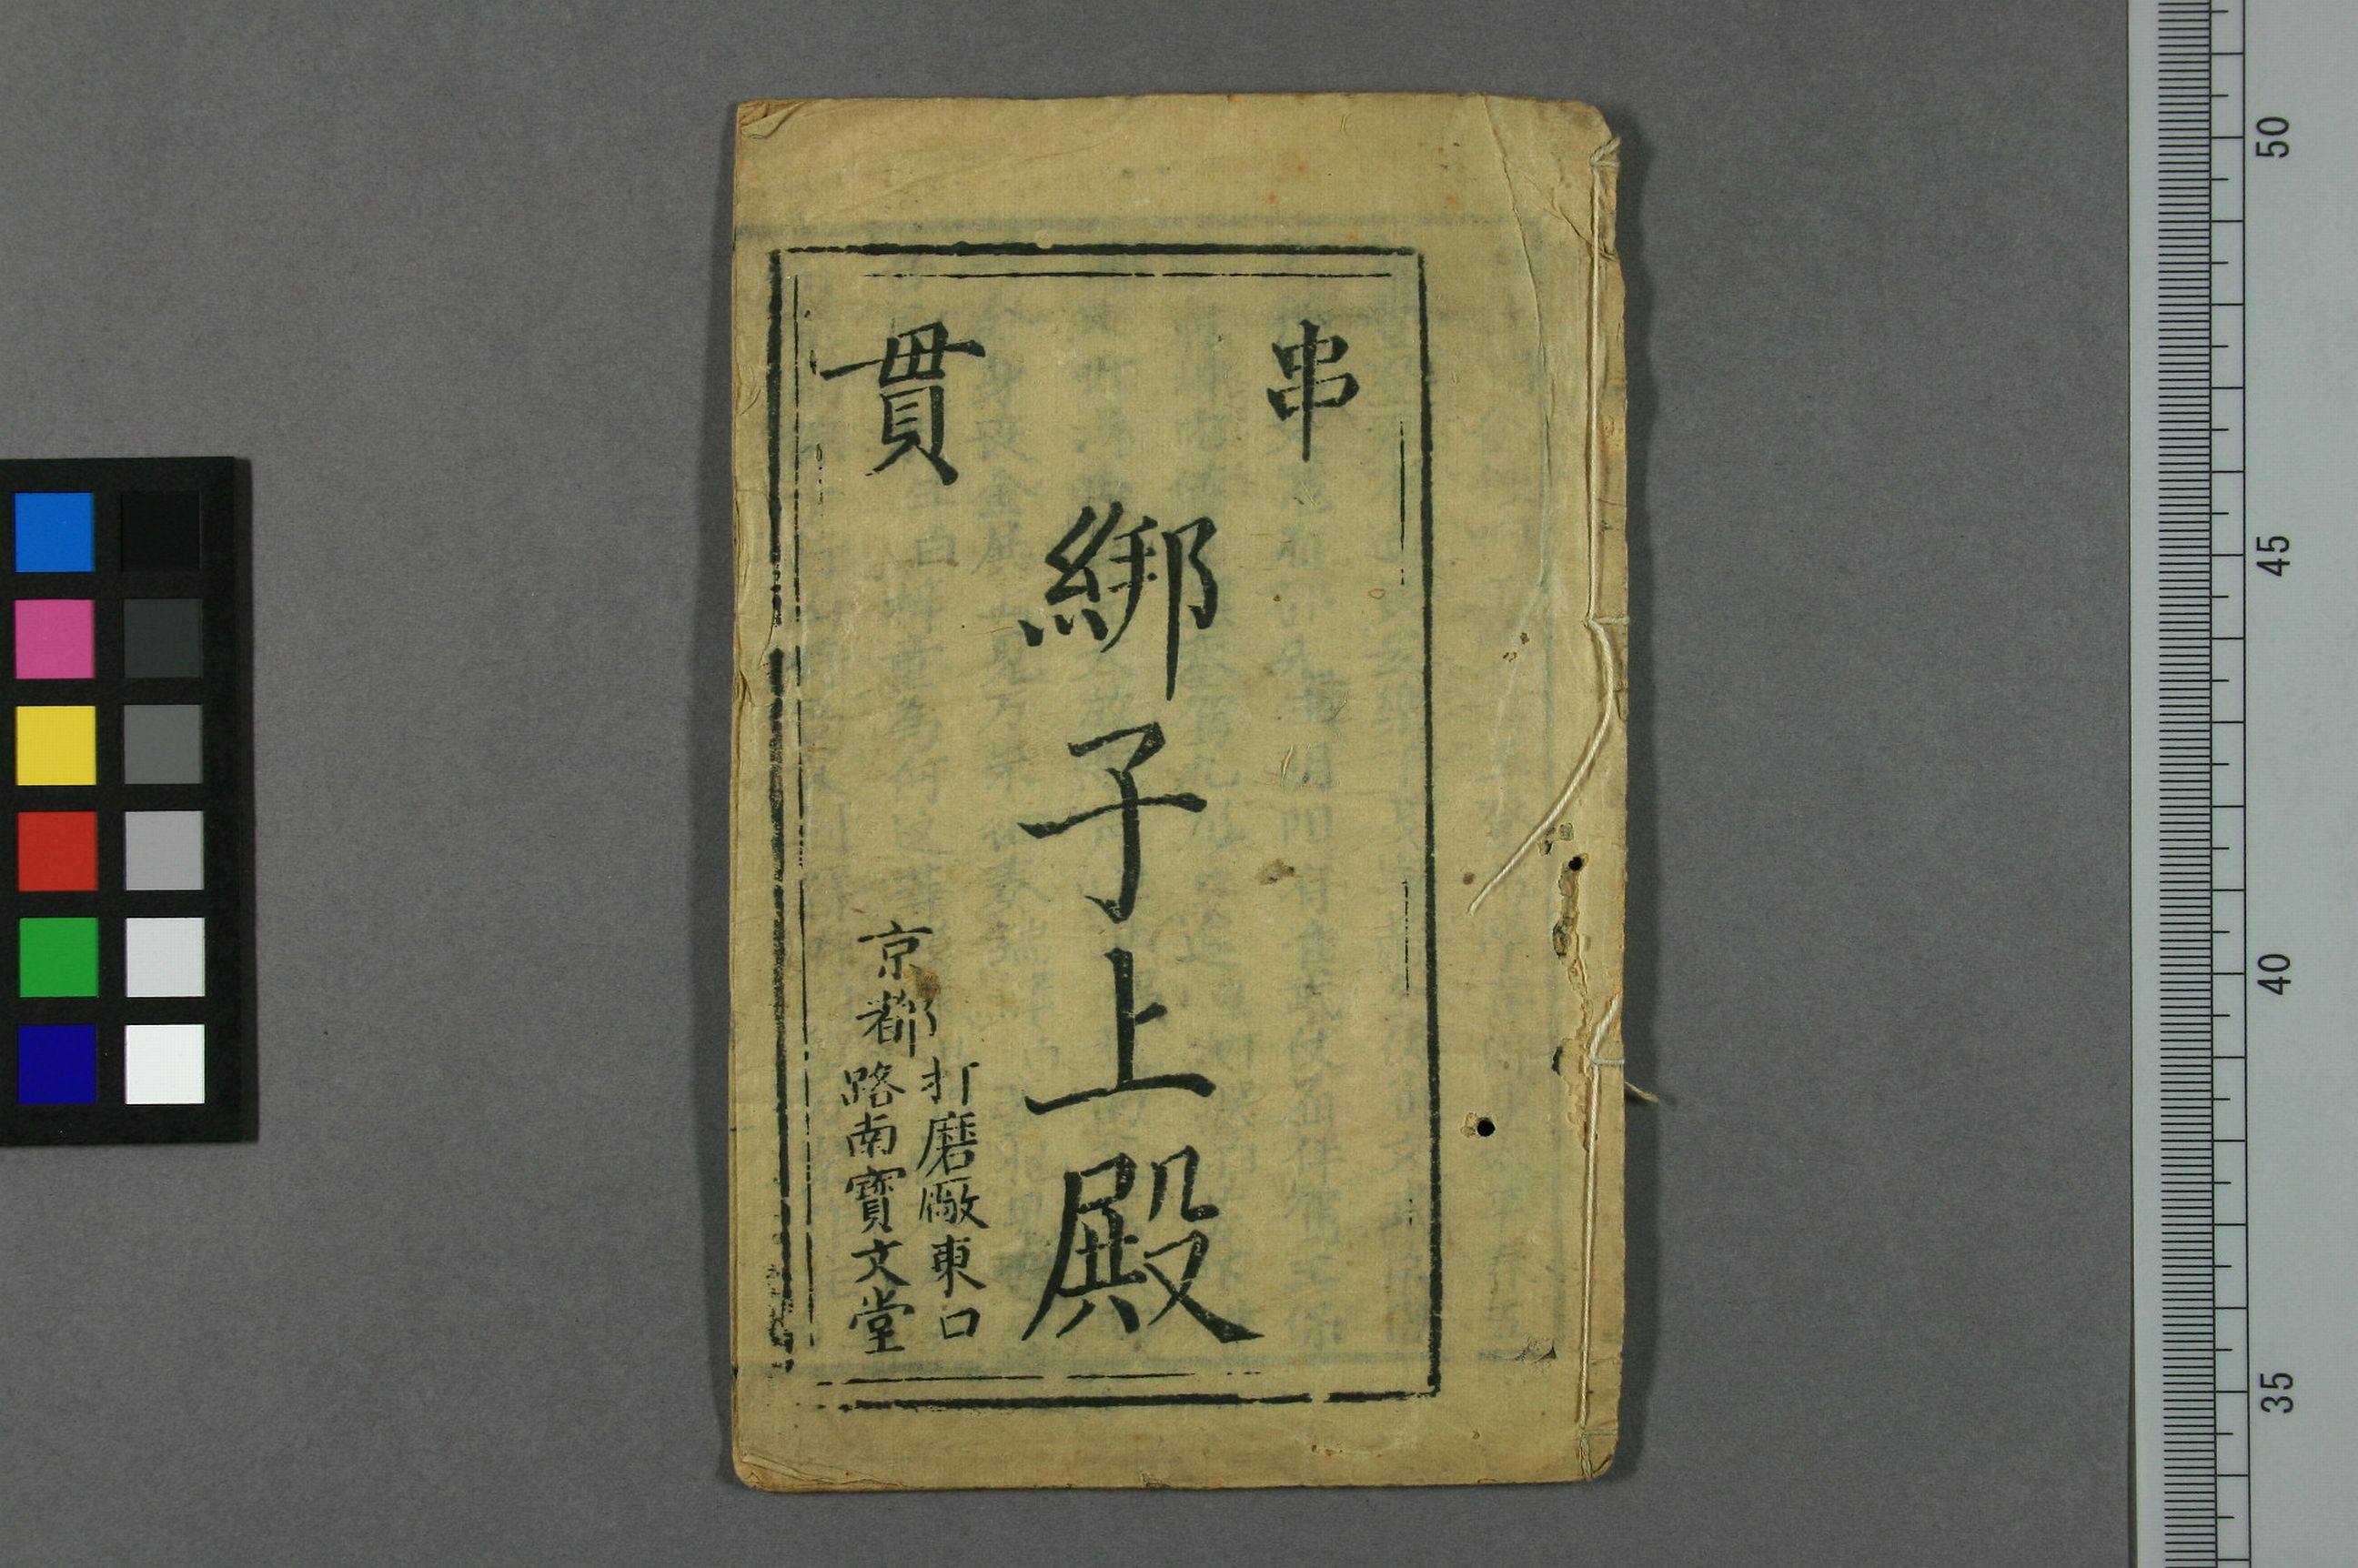 串貫
綁子上殿
京都
打磨廠東口
路南寳文堂
50
45
40
35